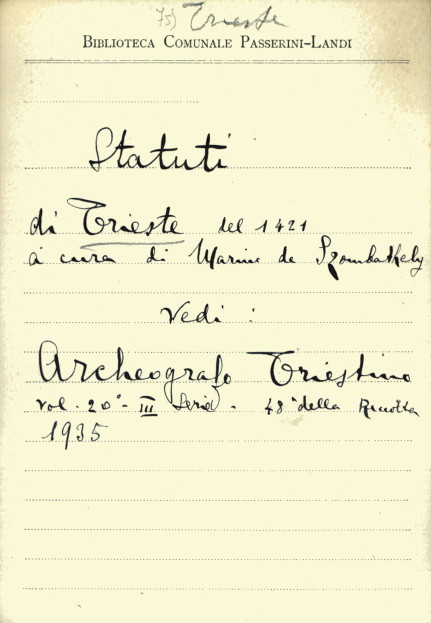 75) Trieste
BIBLIOTECA COMUNALE PASSERINI-LANDI
Statuti
di Trieste del 1421
a cura di Marino de Szombathely
Vedi :
Archeografo Triestino
vol. 20° - III Serie - 48° della Raccolta
1935